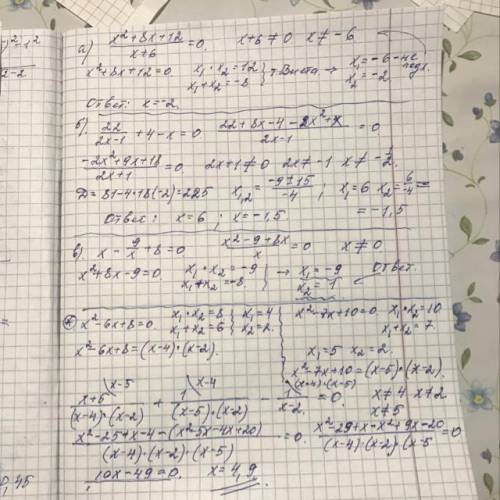 а) (x²+8x+12)/(x+6) = 0, x+6 ≠ 0 x ≠ -6
x²+8x+12=0 x₁·x₂=12 x₁+x₂=-8 } т. Виета → x₁=-6 - не подх. x₂=-2
Ответ: x=-2.
б) 22/(2x-1) + 4 - x = 0 (22+8x-4-2x²+x)/(2x-1) = 0
(-2x²+9x+18)/(2x+1) = 0. 2x+1≠0 2x≠-1 x≠-1/2.
D=81-4·18(-2)=225 x₁,₂ = (-9±15)/-4 ; x₁=6 x₂=6/-4=
Ответ: x=6; x=-1,5 = -1,5
в) x - 9/x + 8 = 0 (x²-9+8x)/x = 0 x≠0
x²+8x-9=0. x₁·x₂=-9 x₁+x₂=-8 → x₁=-9 x₂=1 Ответ.
* x²-6x+8=0. x₁·x₂=8 x₁+x₂=6 } x₁=4 x₂=2. x²-7x+10=0. x₁·x₂=10 x₁+x₂=7.
x²-6x+8=(x-4)·(x-2). x₁=5 x₂=2.
x²-7x+10=(x-5)·(x-2).
\x-5 \x-4 \(x-4)·(x-5)
(x+5)/((x-4)·(x-2)) + 1/((x-5)·(x-2)) - 1/(x-2) = 0. x≠4 x≠2 x≠5
(x²-25+x-4-(x²-5x-4x+20))/((x-4)·(x-2)·(x-5)) = 0. (x²-29+x-x²+9x-20)/((x-4)·(x-2)(x-5) = 0
10x-49=0. x=4,9